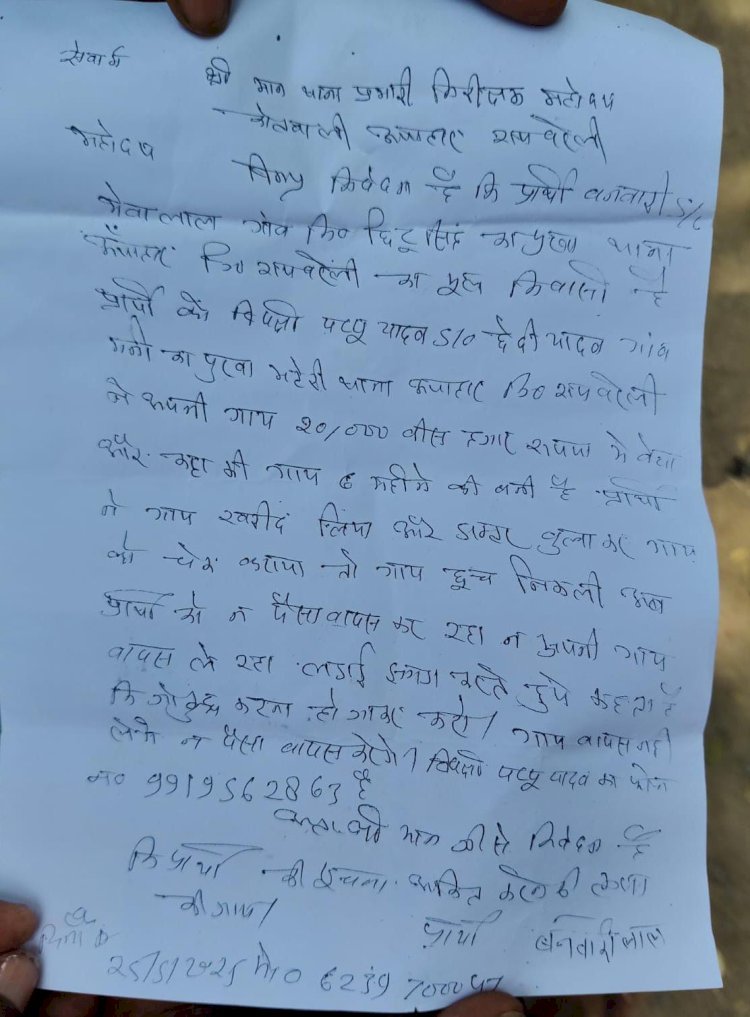 सेवा में
श्री मान थाना प्रभारी निरीक्षक महोदय
कोतवाली ऊंचाहार रायबरेली
महोदय
विनम्र निवेदन है कि प्रार्थी बनवारी S/o
मेवालाल गांव नि० सिंह का पुरवा थाना
ऊंचाहार जि० रायबरेली का मूल निवासी है
प्रार्थी को विपक्षी पप्पू यादव S/o छेदी यादव गांव
मनी का पुरवा थाना ऊंचाहार जि० रायबरेली
ने अपनी गाय २०/००० बीस हजार रुपया में बेचा
और कहा की गाय 6 महीने की बनी है प्रार्थी
ने गाय खरीद लिया और डाक्टर बुलाकर गाय
को चेक कराया तो गाय छूछ निकली अब
प्रार्थी को न पैसा वापस कर रहा न अपनी गाय
वापस ले रहा लड़ाई झगड़ा करते हुये कहता है
कि जो कुछ करना हो जाकर करो। गाय वापस नहीं
लेंगे न पैसा वापस करेंगे। विपक्षी पप्पू यादव का फोन
न० 9919562863 है
अतः श्री मान जी से निवेदन है
कि प्रार्थी की सूचना अंकित करने की कृपा
की जाय।
प्रार्थी बनवारी लाल
दिनांक
25/5/2025 मो०